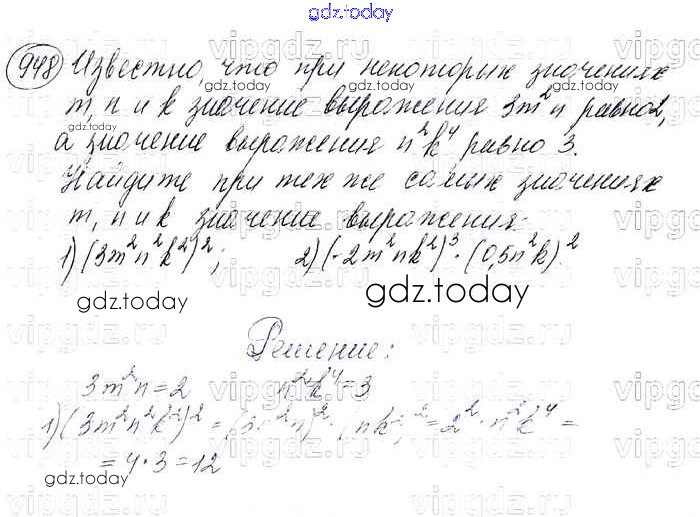 gdz.today
948 Известно, что при некоторых значениях
m, n и k значение выражения 3m²n равно 2,
а значение выражения n²k⁴ равно 3.
Найдите при тех же самых значениях
m, n и k значение выражения:
1) (3m²n²k²)²; 2) (-2m²nk²)³·(0,5n²k)².
gdz.today gdz.today
Решение:
3m²n=2 n²k⁴=3
1) (3m²n²k²)² = (3m²n)²·(nk²)² = 2²·n²k⁴ =
= 4·3 = 12
gdz.today